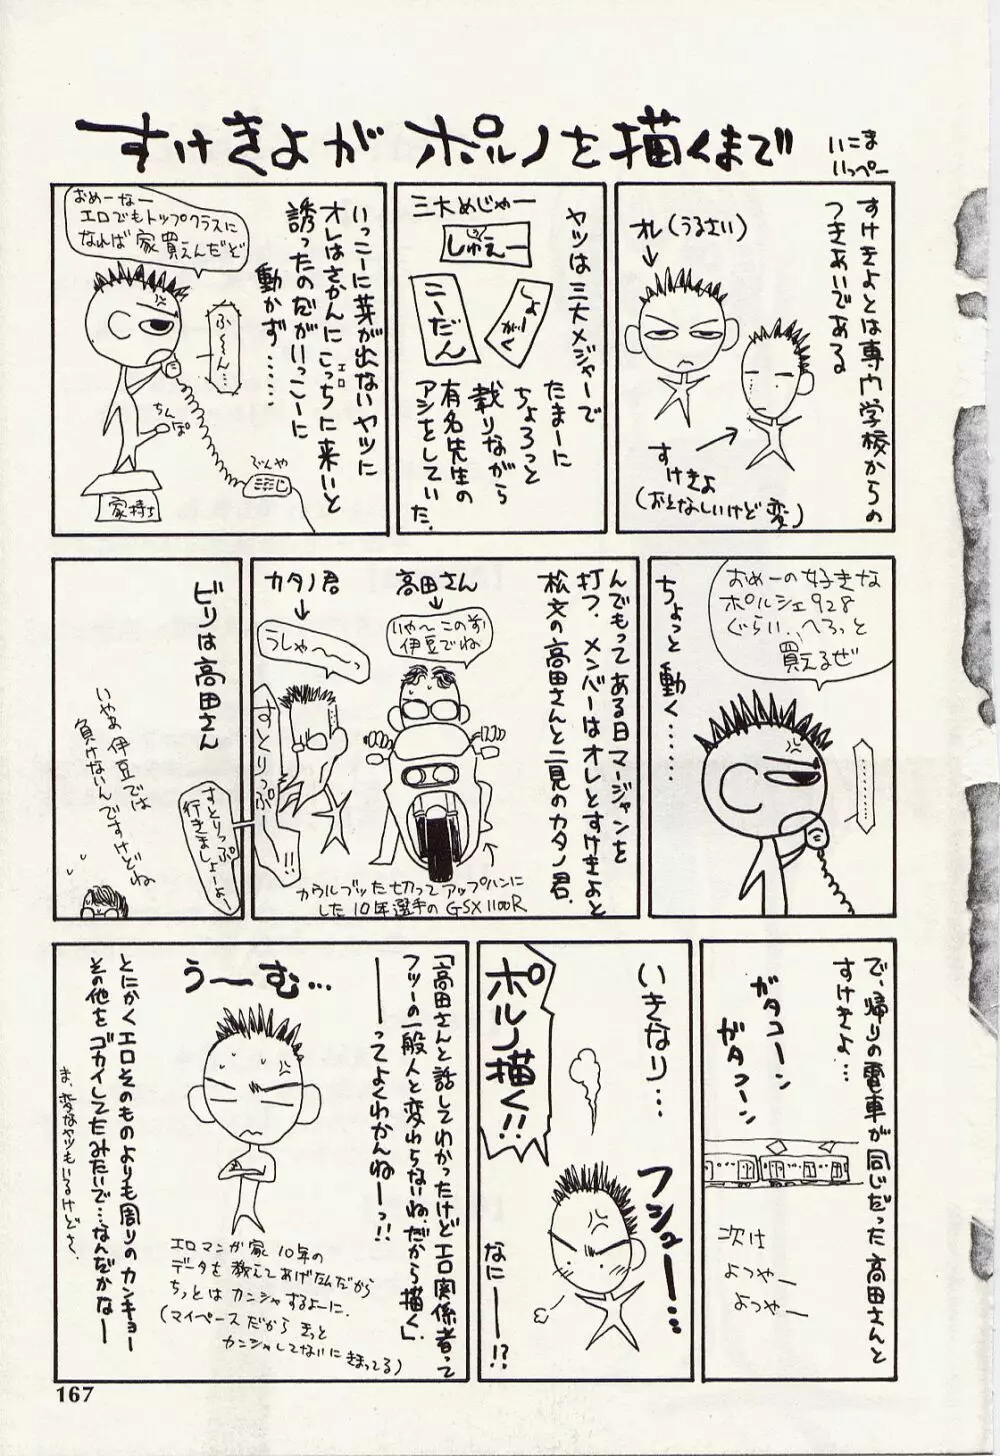 すけきよが ポルノを描くまで
いこま
いっぺー
すけきよとは専門学校からの
つきあいである
オレ(うるさい)
すけきよ
(おとなしいけど変)
ヤツは三大メジャーで
たまーに
ちょろっと
載りながら
有名先生の
アシをしていた.
三大めじゃー
しゅえー
しょーがく
こーだん
いっこーに芽が出ないヤツに
オレはさかんにこっちに来いと
エロ
誘ったのだがいっこーに
動かず……
おめーなー
エロでもトップクラスに
なれば家買えんだぞ
ふ〜〜ん…
ちんぽ
でんや
家持ち
おめーの好きな
ポルシェ928
ぐらい..へろっと
買えるぜ
ちょっと動く……
………
んでもってある日マージャンを
打つ、メンバーはオレとすけきよと
松文の高田さんと二見のカタノ君.
高田さん
いや〜この前
伊豆でね
カタノ君
うしゃ〜〜っ
すとりっぷー!!
カウルブッた切ってアップハンに
した10年選手のGSX1100R
ビリは高田さん
すとりっぷ
行きましょーよー
いやぁ伊豆では
負けないんですけどね
で、帰りの電車が同じだった高田さんと
すけきよ…
ガタコーン
ガタコーン
次は
よつやー
よつやー
いきなり…
ポルノ描く!!
フシューー…
なにーー!?
「高田さんと話してわかったけどエロ関係者って
フツーの一般人と変わらないね.だから描く」.
――ってよくわかんねーっ!!
うーむ…
エロマンガ家10年の
データを教えてあげたんだから
ちっとはカンシャするよーに.
(マイペースだからきっと
カンシャしてないにきまってる)
とにかくエロそのものよりも周りのカンキョー
その他をゴカイしてたみたいで…なんだかなー
ま、変なヤツもいるけどさ、
167